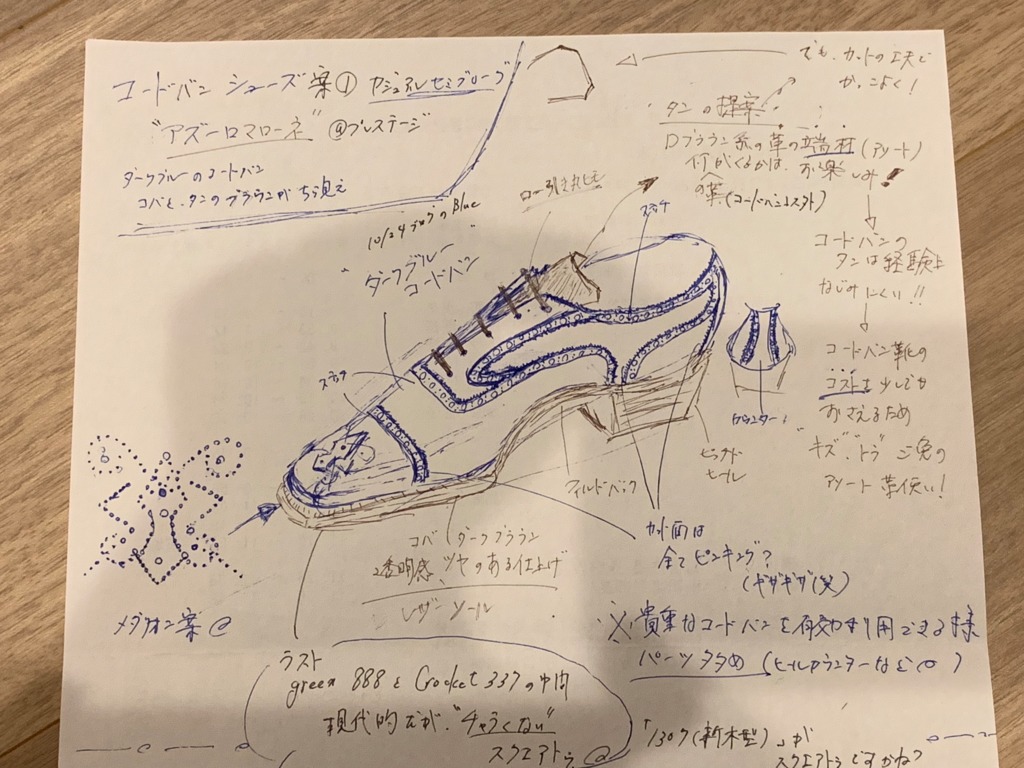 コードバン シューズ 案① カジュアルセミブローグ
"アズーロマローネ" @プレステージ
ダークブルーのコードバン
コバと、タンのブラウンがちら見え
でも、カットの工夫で
かっこよく!
タンの提案
Dブラウン系の革の端材(アソート)
何がくるかは、お楽しみ!
の革(コードバン以外)
コードバンの
タンは経験上
なじみにくい!!
コードバン靴の
コストを少しでも
おさえるため
"キズ"、"トラ"ご免の
アソート革使い!
ロー引き丸ヒモ
ステッチ
10/24ブログのBlue
"ダークブルー
コードバン"
ステッチ
カウンター
ピッチド
ヒール
フィルドバック
カット面は
全てピンキング?
(ギザギザ(笑)
コバ ダークブラウン
透明感、ツヤのある仕上げ
レザーソール
メダリオン案@
※貴重なコードバンを有効利用できる様
パーツ多め(ヒールカウンターなど
ラスト
green 888とCrocket 337の中間
現代的だが、"チャラくない"
スクエアトゥ
「1307(新木型)」が
スクエアトゥですかね?